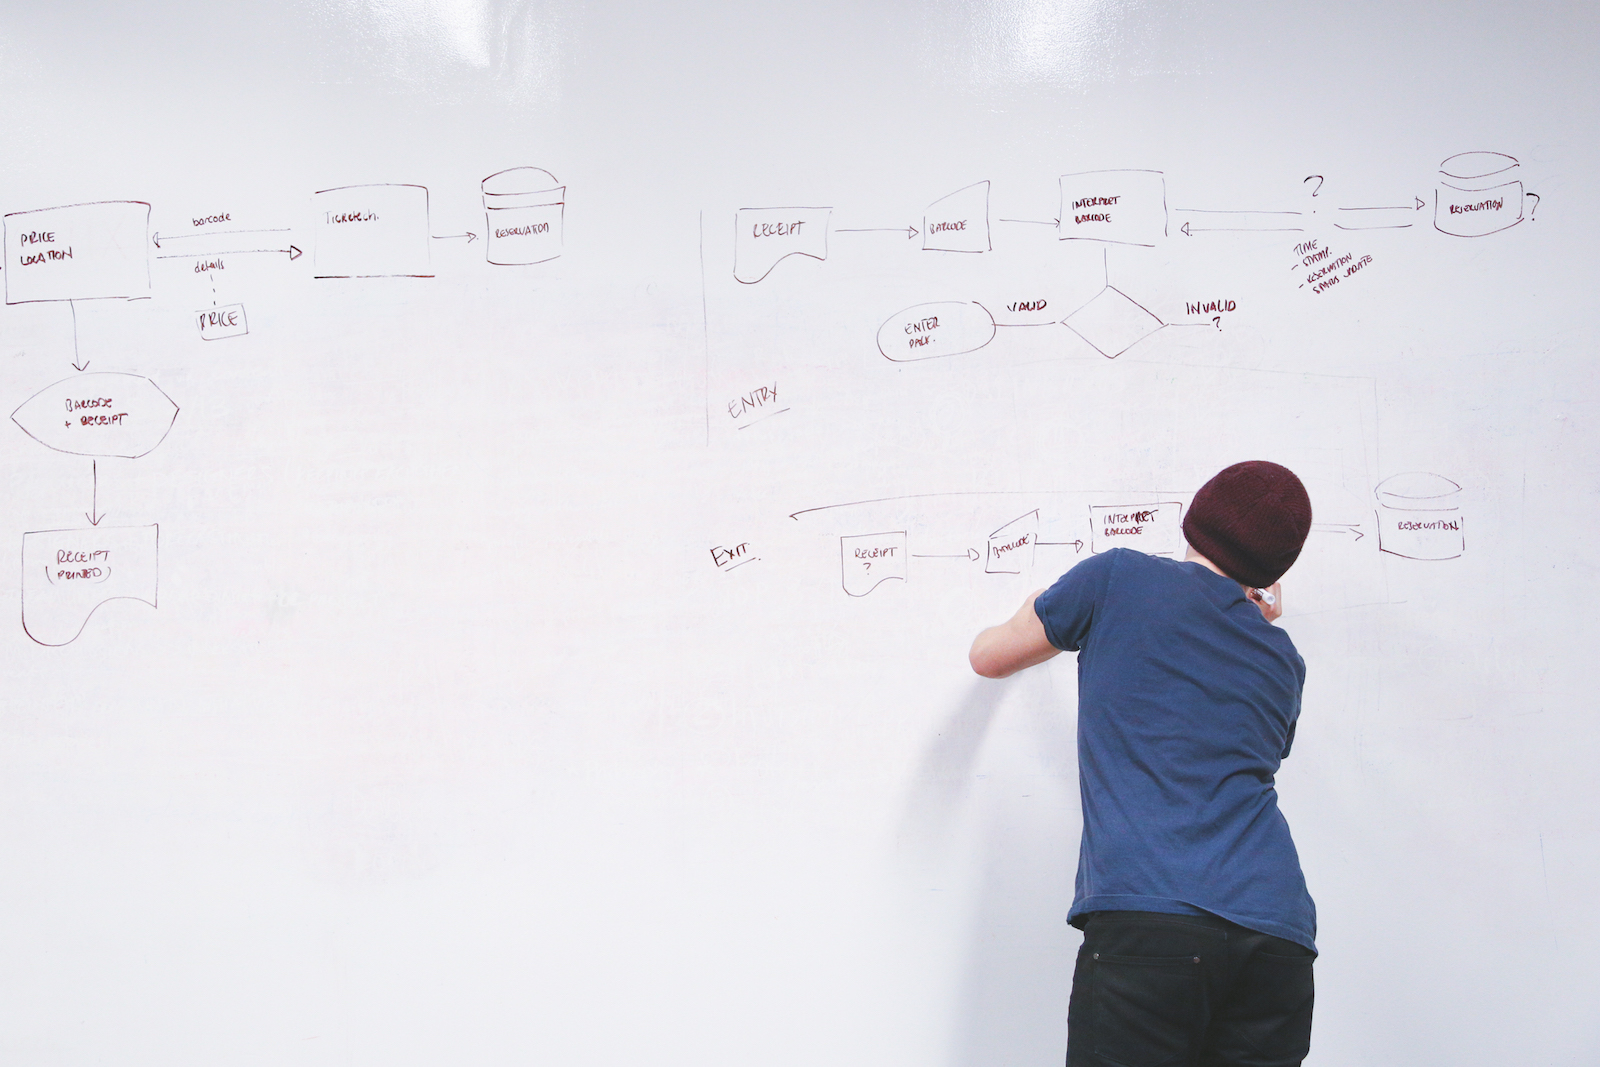 PRICE
LOCATION
barcode
details
PRICE
Ticketech.
RESERVATION
BARCODE
+ RECEIPT
RECEIPT
(PRINTED)
RECEIPT
BARCODE
INTERPRET
BARCODE
?
TIME
- STAMP.
- RESERVATION
STATUS UPDATE
RESERVATION
?
ENTER
VALID
INVALID
?
ENTRY
EXIT.
RECEIPT
?
BARCODE
INTERPRET
BARCODE
RESERVATION